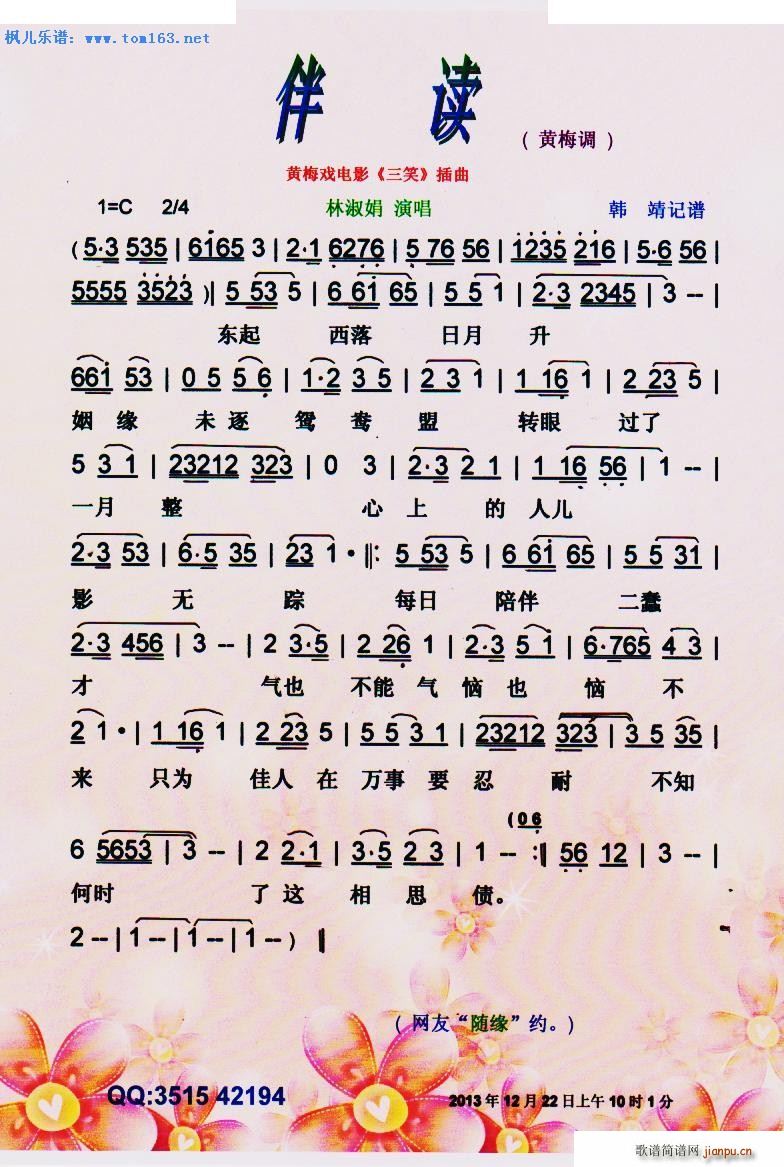 枫儿乐谱：www.tom163.net
伴 读
（黄梅调）
黄梅戏电影《三笑》插曲
1=C 2/4 林淑娟 演唱 韩 靖记谱
(5·3 535 | 6165 3 | 2·1 6276 | 5 76 56 | 1235 216 | 5·6 56 |
5555 3523 )| 5 53 5 | 6 61 65 | 5 5 1 | 2·3 2345 | 3 -- |
东起 西落 日月 升
661 53 | 0 5 5 6 | 1·2 3 5 | 2 3 2 1 | 1 16 1 | 2 23 5 |
姻缘 未逐 鸳鸯 盟 转眼 过了
5 3 1 | 23212 323 | 0 3 | 2·3 2 1 | 1 16 56 | 1 -- |
一月 整 心上 的 人儿
2·3 53 | 6·5 35 | 23 1 · ‖: 5 53 5 | 6 61 65 | 5 5 31 |
影 无 踪 每日 陪伴 二蠢
2·3 456 | 3 -- | 2 3·5 | 2 26 1 | 2·3 5 1 | 6·765 4 3 |
才 气也 不能 气恼也 恼 不
2 1· | 1 16 1 | 2 23 5 | 5 5 3 1 | 23212 323 | 3 5 35 |
来 只为 佳人 在 万事 要 忍 耐 不知
(0 6
6 5653 | 3 -- | 2 2·1 | 3·5 2 3 | 1 -- :‖ 56 12 | 3 -- |
何时 了这 相思 债。
2 -- | 1 -- | 1 -- | 1 -- ) ‖
( 网友“随缘”约。)
QQ:3515 42194 2013年12月22日上午10时1分
歌谱简谱网 jianpu.cn